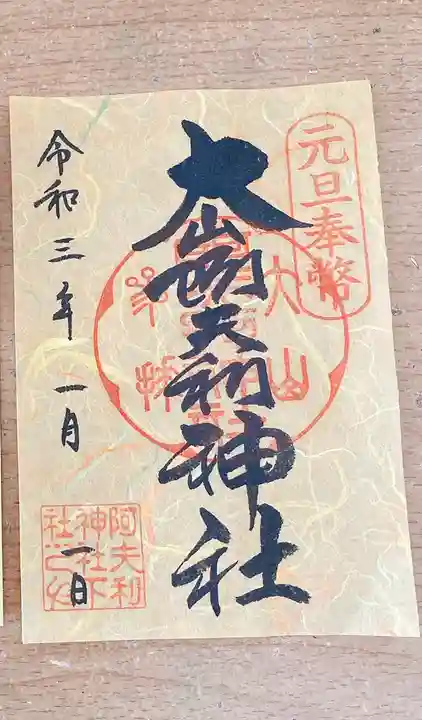 元旦奉幣
大山阿夫利神社
令和三年一月
一日
阿夫利
神社下
社之